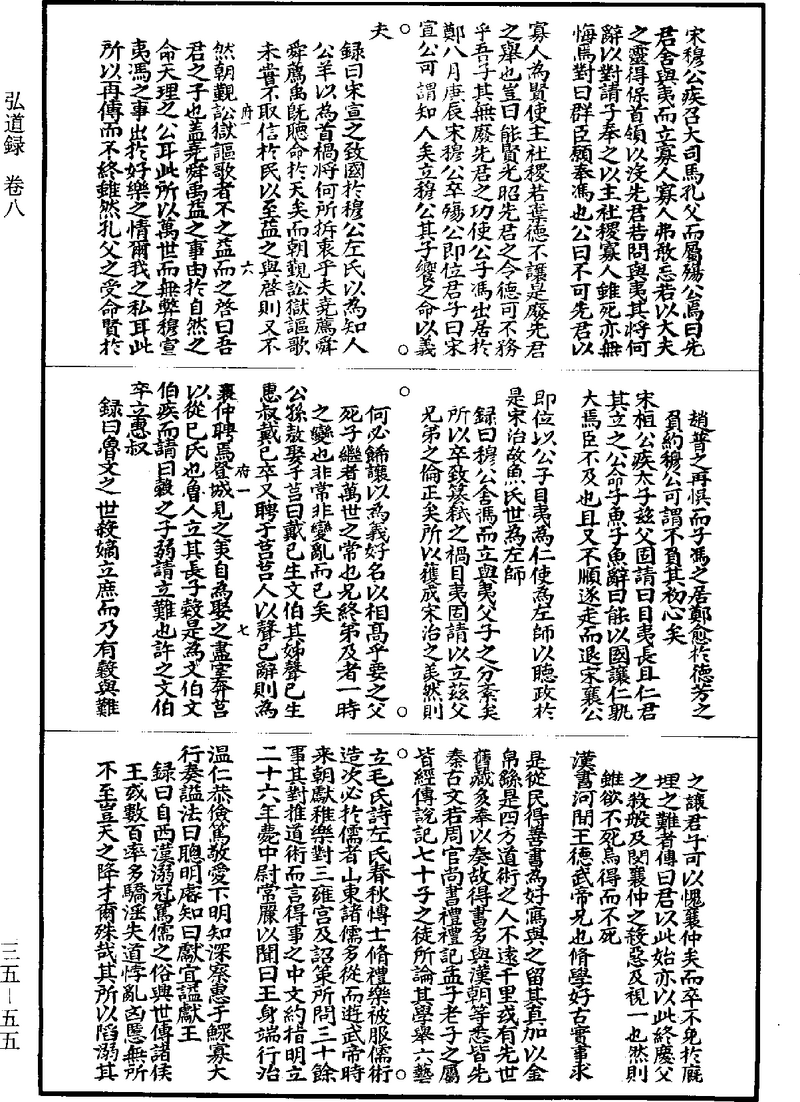 弘道録 卷八
宋穆公疾召大司馬孔父而屬殤公焉曰先
君舍與夷而立寡人寡人弗敢忘若以大夫
之靈得保首領以沒先君若問與夷其將何
辭以對請子奉之以主社稷寡人雖死亦無
悔焉對曰群臣願奉馮也公曰不可先君以
寡人為賢使主社稷若棄德不讓是廢先君
之舉也豈曰能賢光昭先君之令德可不務
乎吾子其無廢先君之功使公子馮出居於
鄭八月庚辰宋穆公卒殤公即位君子曰宋
宣公可謂知人矣立穆公其子饗之命以義
夫
録曰宋宣之致國於穆公左氏以為知人
公羊以為首禍將何所折衷乎夫堯薦舜
舜薦禹旣聽命於天矣而朝覲訟獄謳歌
未嘗不取信於民以至益之與啓則又不
府一 六
然朝覲訟獄謳歌者不之益而之啓曰吾
君之子也蓋堯舜禹益之事由於自然之
命天理之公耳此所以萬世而無弊穆宣
夷馮之事出於好樂之情爾我之私耳此
所以再傳而不終雖然孔父之受命賢於
趙普之再悞而子馮之居鄭愈於德芳之
負約穆公可謂不負其初心矣
宋桓公疾太子兹父固請曰目夷長且仁君
其立之公命子魚子魚辭曰能以國讓仁孰
大焉臣不及也且又不順遂走而退宋襄公
即位以公子目夷為仁使為左師以聽政於
是宋治故魚氏世為左師
録曰穆公舍馮而立與夷父子之分紊矣
所以卒致簒弑之禍目夷固請以立兹父
兄弟之倫正矣所以獲成宋治之美然則
何必餙讓以為義好名以相高乎要之父
死子繼者萬世之常也兄終弟及者一時
之變也非常非變亂而已矣
公孫敖娶于莒曰戴己生文伯其娣聲己生
惠叔戴己卒又聘于莒莒人以聲己辭則為
府一 七
襄仲聘焉登城見之美自為娶之盡室奔莒
以從己氏也魯人立其長子穀是為文伯文
伯疾而請曰穀之子弱請立難也許之文伯
卒立惠叔
録曰魯文之世殺嫡立庶而乃有穀與難
之讓君子可以愧襄仲矣而卒不免於厩
埋之難者傳曰君以此始亦以此終慶父
之殺般及閔襄仲之殺惡及視一也然則
雖欲不死烏得而不死
漢書河間王德武帝兄也脩學好古實事求
是從民得善書為好寫與之留其真加以金
帛餙是四方道術之人不遠千里或有先世
舊藏多奉以奏故得書多與漢朝等悉皆先
秦古文若周官尚書禮禮記孟子老子之屬
皆經傳說記七十子之徒所論其學舉六藝
立毛氏詩左氏春秋博士脩禮樂被服儒術
造次必於儒者山東諸儒多從而遊武帝時
来朝獻雅樂對三雍宮及詔策所問三十餘
事其對推道術而言得事之中文約指明立
二十六年薨中尉常麗以聞曰王身端行治
温仁恭儉篤敬愛下明知深察惠于鰥寡大
行奏謚法曰聰明睿知曰獻宜謚獻王
録曰自西漢溺冠罵儒之俗興世傳諸侯
王或數百率多驕淫失道悖亂凶慝無所
不至豈天之降才爾殊哉其所以陷溺其
三五—五五